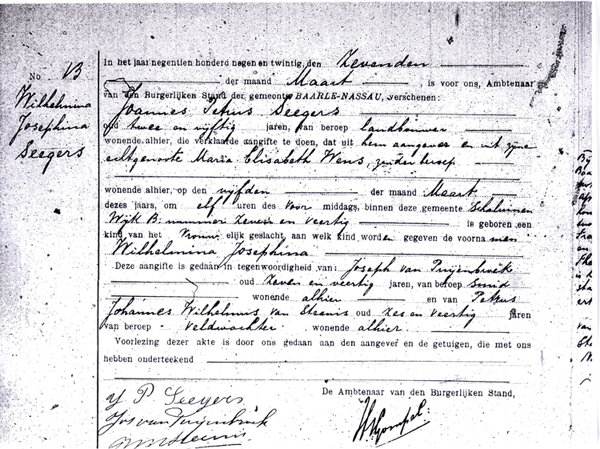 In het jaar negentien honderd negen en twintig, den Zevenden
No 13
der maand Maart, is voor ons, Ambtenaar
Wilhelmina
Josephina
Seegers
van den Burgerlijken Stand der gemeente BAARLE-NASSAU, verschenen:
Joannes Petrus Seegers
oud twee en vijftig jaren, van beroep landbouwer
wonende alhier, die verklaarde aangifte te doen, dat uit hem aangever en uit zijne
echtgenoote Maria Elisabeth Wens, zonder beroep
wonende alhier, op den vijfden der maand Maart
dezes jaars, om elf uren des voor middags, binnen deze gemeente
Wijk B. nummer Zeven en veertig is geboren een
kind van het Vrouw elijk geslacht, aan welk kind worden gegeven de voornamen
Wilhelmina Josephina
Deze aangifte is gedaan in tegenwoordigheid van: Joseph van Tuijenbroek
oud Zeven en veertig jaren, van beroep smid
wonende alhier en van Petrus
Johannes Wilhelmus van Steenis oud Zes en veertig jaren
van beroep veldwachter wonende alhier.
Voorlezing dezer akte is door ons gedaan aan den aangever en de getuigen, die met ons
hebben onderteekend
De Ambtenaar van den Burgerlijken Stand,
J P Seegers
Jos van Tuijenbroek